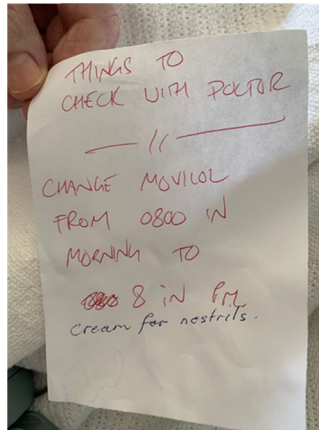 THINGS TO
CHECK WITH DOCTOR
— 11 —
CHANGE MOVILOL
FROM 0800 IN
MORNING TO
8 IN PM
Cream for nostrils.